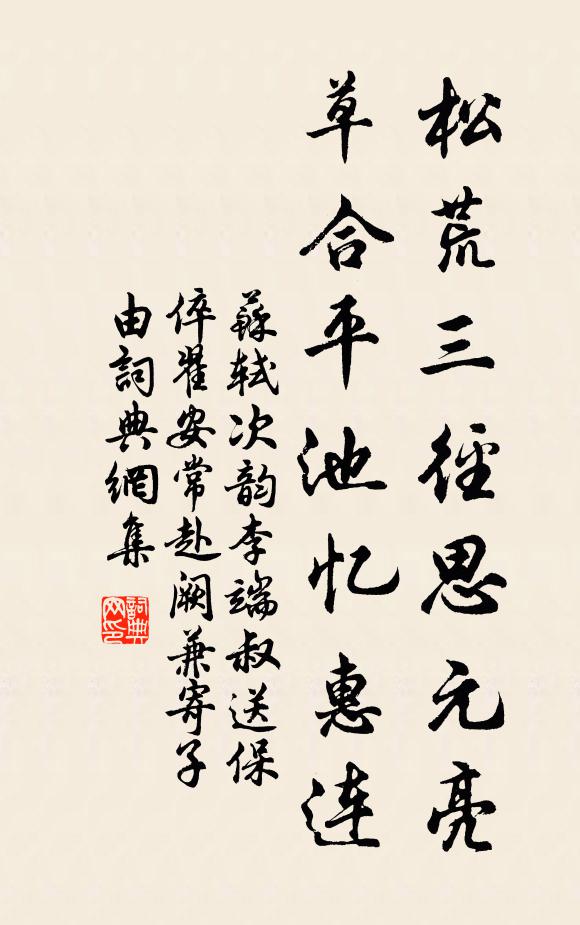 松荒三徑思元亮
草合平池忆惠连
蘇軾次韵李端叔送保
倅翟安常赴阙兼寄子
由詞典網集
詞典网印